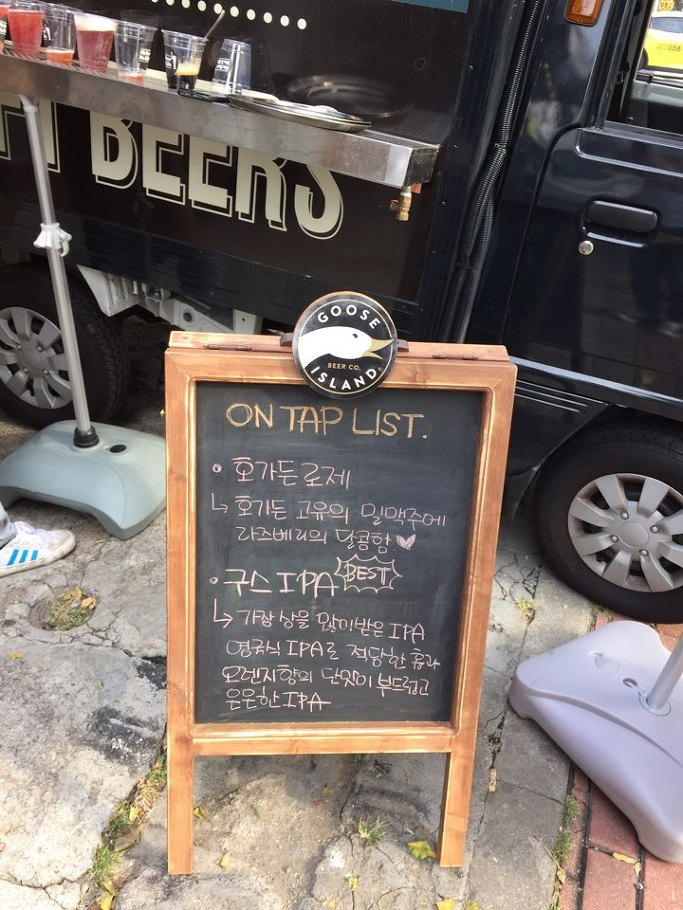 BEERS
GOOSE
BEER CO.
ISLAND
ON TAP LIST.
• 호가든로제
↳ 호가든 고유의 밀맥주에
라즈베리의 달콤함 ♥
• 구스 IPA BEST
↳ 가장 상을 많이받은 IPA
영국식 IPA로 적당한 홉과
오렌지향의 단맛이 부드럽고
은은한 IPA